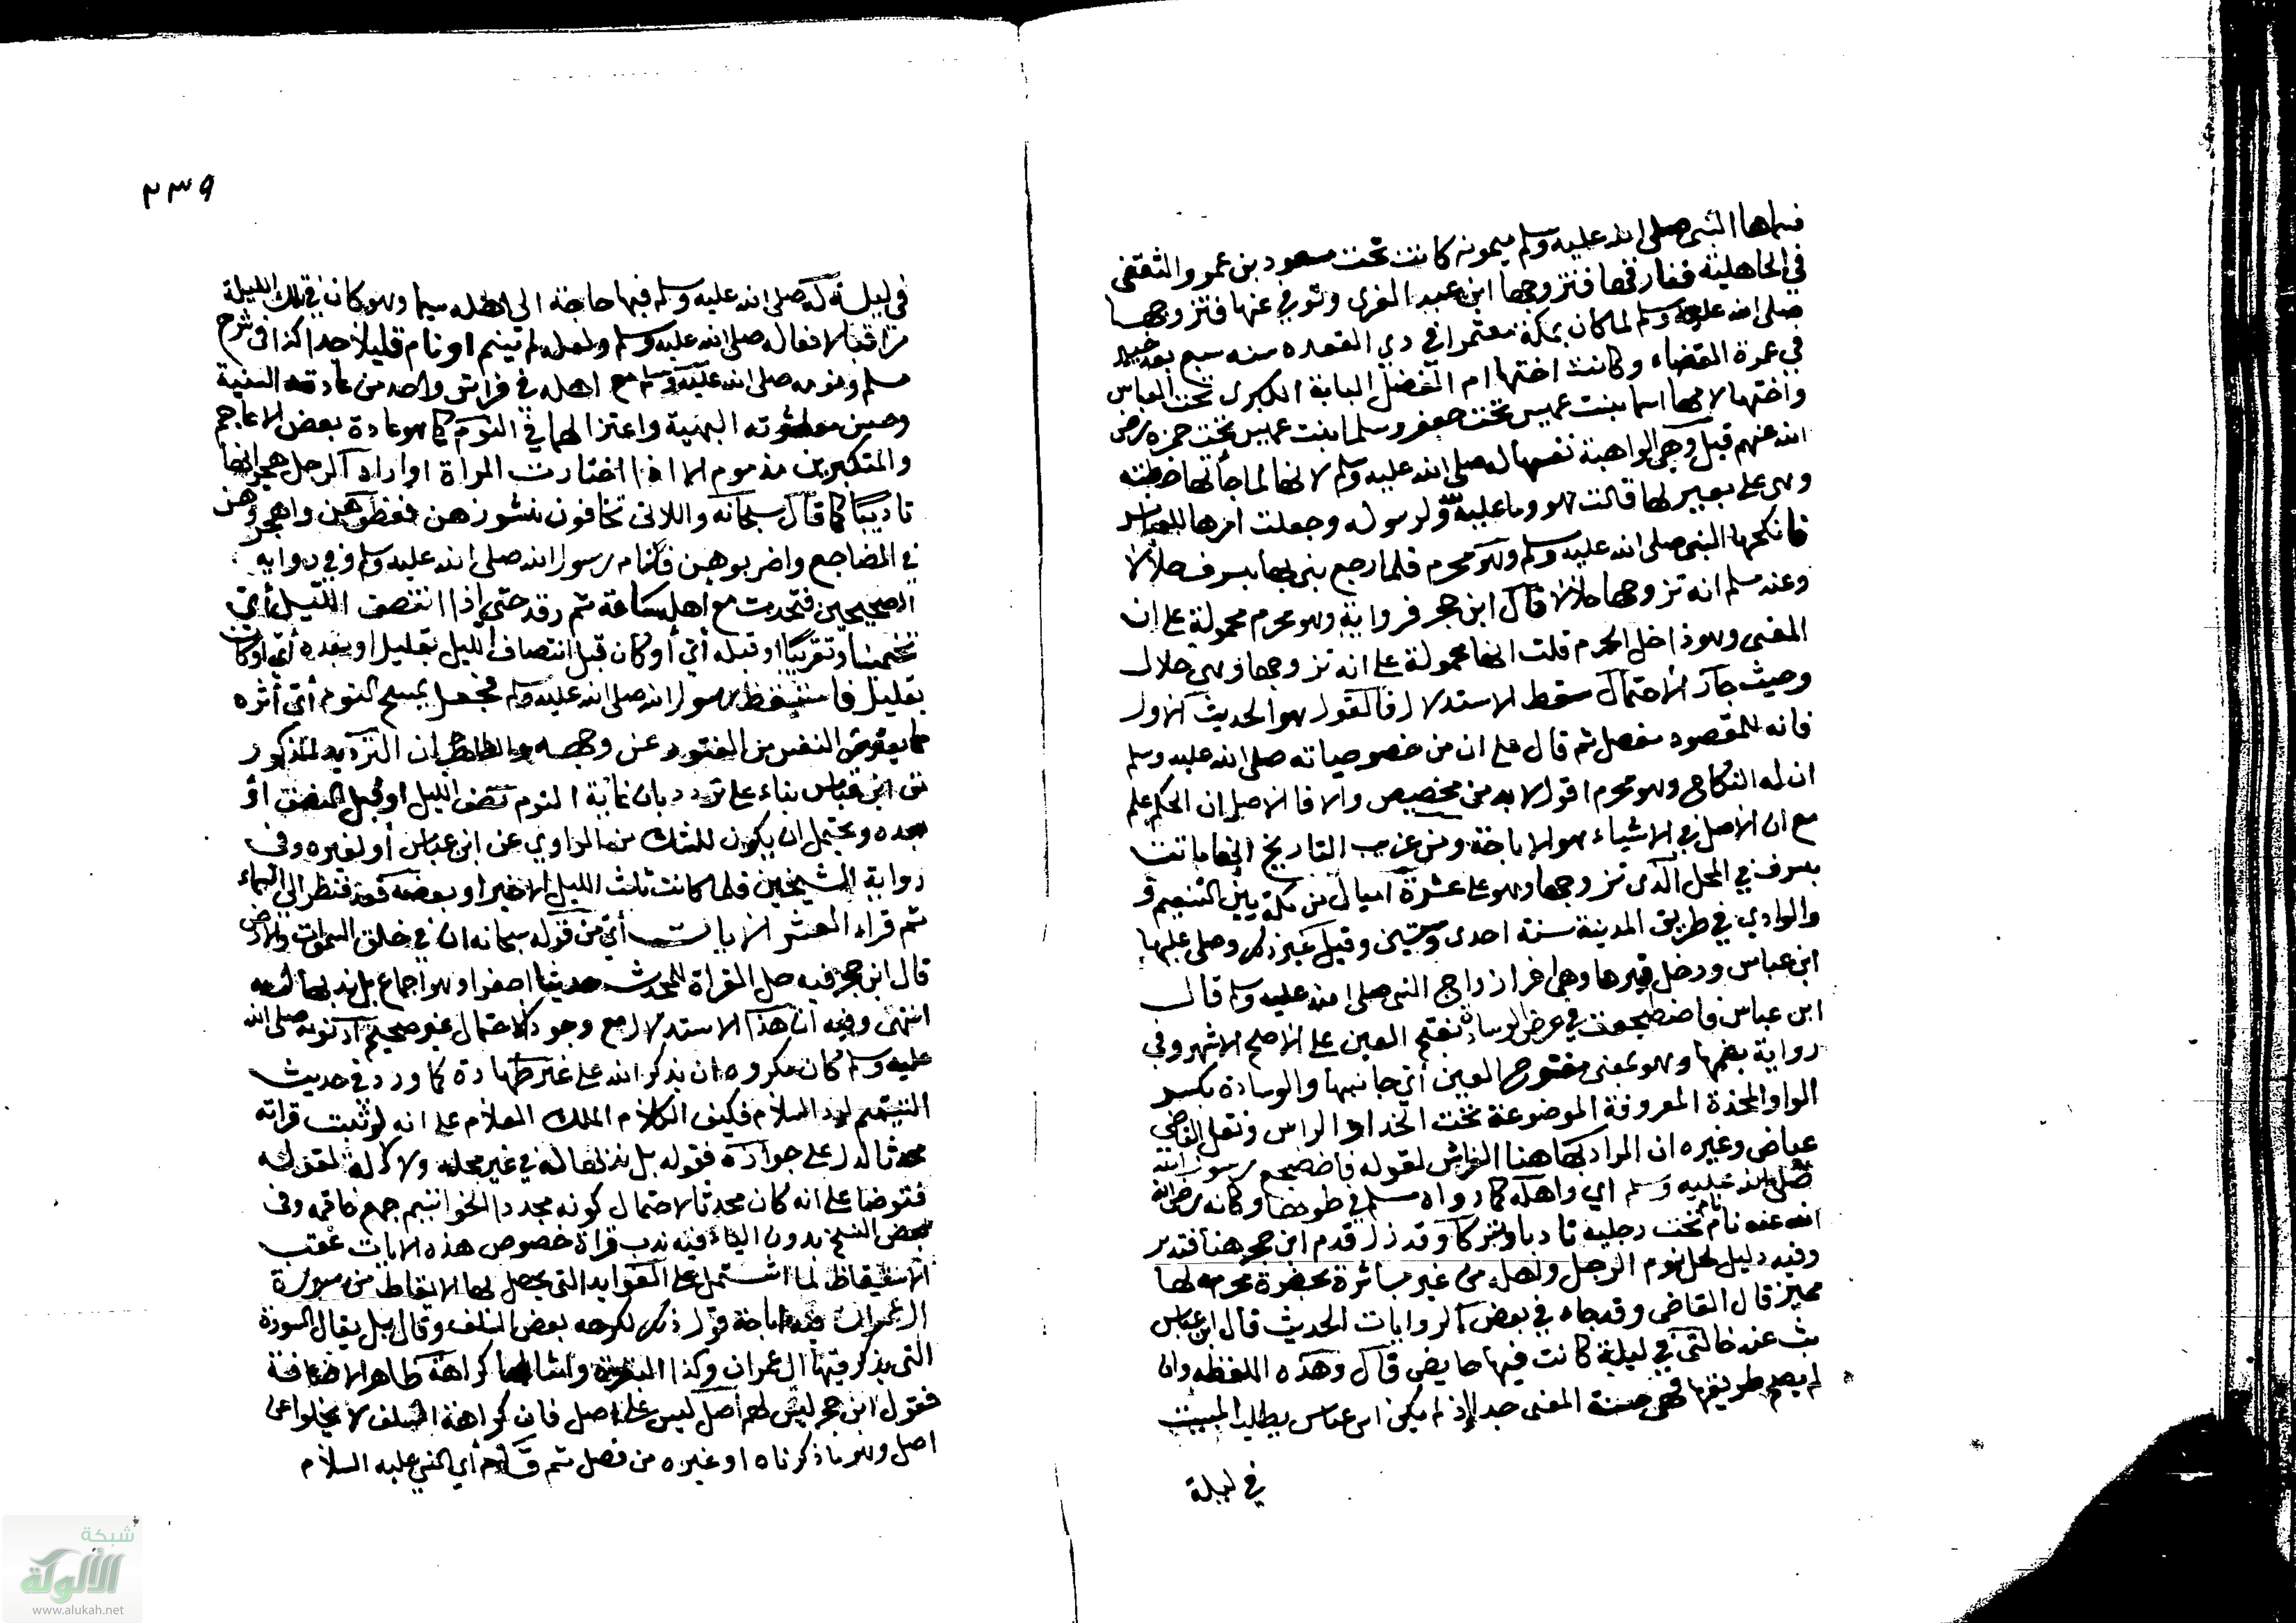 فسماها النبي صلى الله عليه وسلم ميمونه كانت تحت مسعود بن عمرو الثقفي
في الجاهلية ففارقها فتزوجها ابن عبد العزى وتوفي عنها فتزوجها
صلى الله عليه وسلم لما كان بمكة معتمرا في ذي القعده سنه سبع بعد خيبر
في عمرة القضاء وكانت اختها ام الفضل لبابة الكبرى تحت العباس
واختها لامها اسما بنت عميس تحت جعفر وسلما بنت عميس تحت حمزه رضي
الله عنهم قيل وهي الواهبة نفسها له صلى الله عليه وسلم لانها لما جأتها خطبته
وهي على بعير لها قالت هو وما عليه لله ولرسوله وجعلت امرها للعباس
فانكحها النبي صلى الله عليه وسلم وهو محرم فلما رجع بنى بها بسرف حلالا
وعند مسلم انه تزوجها حلالا قال ابن حجر فرواية وهو محرم محمولة على ان
المعنى وهو داخل الحرم قلت انها محمولة على انه تزوجها وهي حلال
وحيث جاز الاحتمال سقط الاستدلال فالقول هو الحديث الاول
فانه للمقصود مفصل ثم قال على ان من خصوصياته صلى الله عليه وسلم
ان له النكاح وهو محرم اقول لا بد من مخصيص والا فالاصل ان الحكم علم
مع ان الاصل في الاشياء هو الاباحة ومن غريب التاريخ انها ماتت
بسرف في المحل الذي تزوجها وهو على عشرة اميال من مكة بين التنعيم و
والوادي في طريق المدينة سنة احدى وستين وقيل غير ذلك وصلى عليها
ابن عباس ودخل قبرها وهي اخر ازواج النبي صلى الله عليه وسلم قال
ابن عباس فاضطجعت في عرض الوسادة بفتح العين على الاصح الاشهر وفي
رواية بضمها وهو بمعنى مفتوح العين أي جانبها والوسادة بكسر
الواو المخدة المعروفة الموضوعة تحت الخد او الراس ونقل القاضي
عياض وغيره ان المراد بها هنا الفراش لقوله فاضطجع رسول الله
صلى الله عليه وسلم اي واهله كما رواه مسلم في طولها وكانه رضي الله
الله عنه نام تحت رجليه تادبا وتبركا وقد زل قدم ابن حجر هنا فتدبر
وفيه دليل لحل نوم الرجل واهله من غير مباشرة بحضرة محرم لها
مميز قال القاضي وقد جاء في بعض الروايات الحديث قال ابن عباس
بت عند خالتي في ليلة كانت فيها حايض قال وهذه اللفظه وان
لم يصح طريقها فهي حسنة المعنى جدا إذ لم يكن ابن عباس يطلب المبيت
في ليلة
٢٣٩
في ليلة له صلى الله عليه وسلم فيها حاجة الى اهله سيما وهو كان في تلك الليلة
مراقبا لافعاله صلى الله عليه وسلم ولعله لم ينم او نام قليلا جدا كذا في شرح
مسلم ونومه صلى الله عليه وسلم مع اهله في فراش واحد من عادته السنية
وحسن معاشرته البهية واعتزالها في النوم كما هو عادة بعض الاعاجم
والمتكبرين مذموم الا اذا اختارت المراة او اراد الرجل هجرانها
تاديبا كما قال سبحانه واللاتي تخافون نشوزهن فعظوهن واهجروهن
في المضاجع واضربوهن فنام رسول الله صلى الله عليه وسلم وفي رواية
الصحيحين فتحدث مع اهله ساعة ثم رقد حتى إذا انتصف الليل أي
تخمينا وتقريبا او قبله أي أو كان قبل انتصاف الليل بقليل او بعده أي او كان
بقليل فاستيقظ رسول الله صلى الله عليه وسلم فجعل يمسح النوم أي أثره
مما يعترى النفس من الفتور عن وجهه والظاهر ان الترديد المذكور
من ابن عباس بناء على تردده بان غاية النوم نصف الليل او قبل النصف او
بعده ويحتمل ان يكون للشك من الراوي عن ابن عباس أو لغيره وفي
رواية الشيخين فلما كانت ثلث الليل الاخير او بعضه قعد فنظر الى السماء
ثم قراء العشر الايات أي من قوله سبحانه ان في خلق السموات والارض
قال ابن حجر فيه حل القراة للمحدث حدثا اصغر وهو اجماع بل ندبها له
انتهى وفيه ان هذا الاستدلال مع وجود الاحتمال غير صحيح اذ نومه صلى الله
عليه وسلم كان مكروه ان يذكر الله على غير طهارة كما ورد في حديث
التيمم لرد السلام فكيف الكلام الملك العلام على انه لو ثبت قراته
محدثا لدل على جوازه فقوله بل ندبها له في غير محله ولا دلالة لقوله
فتوضا على انه كان محدثا لاحتمال كونه مجددا الخواتيم جمع خاتمه وفي
بعض النسخ بدون الياء فيه ندب قراة خصوص هذه الايات عقب
الاستيقاظ لما اشتمل على الفوايد التي يحصل لها الايقاظ من سورة
ال عمران وفيه اباحة قول ذلك لكرهه بعض السلف وقال بل يقال السورة
التي يذكر فيها ال عمران وكذا البقرة وامثالها كراهة ظاهر الاضافة
فقول ابن حجر ليس لهم أصل ليس على اصل فان كراهة السلف لا يخلوا عن
اصل وهو ما ذكرناه او غيره من فصل ثم قام أي النبي عليه السلام
شبكة
الألوكة
www.alukah.net